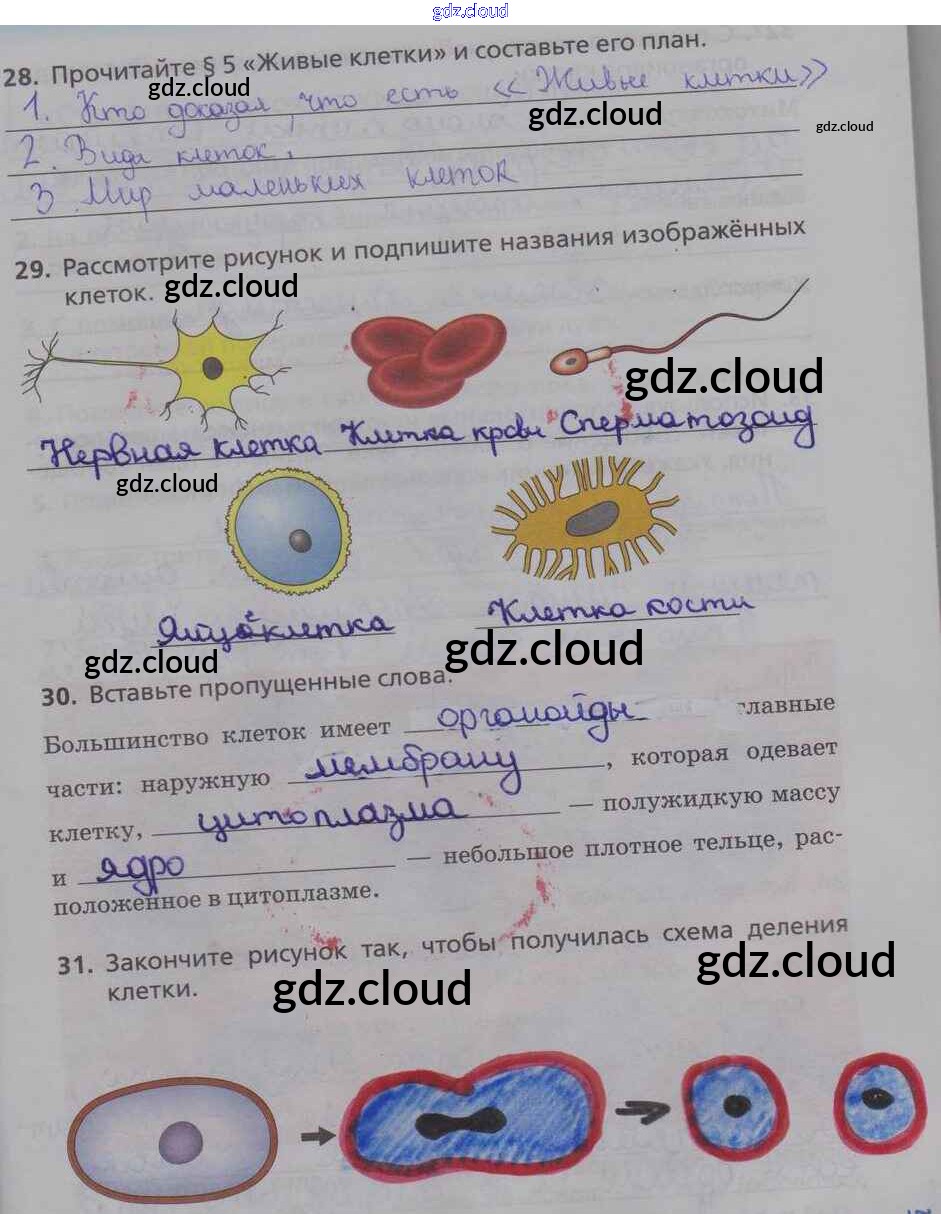 gdz.cloud
28. Прочитайте § 5 «Живые клетки» и составьте его план.
gdz.cloud
1. Кто доказал, что есть «Живые клетки»
gdz.cloud
gdz.cloud
2. Виды клеток.
3. Мир маленьких клеток
29. Рассмотрите рисунок и подпишите названия изображённых
клеток.
gdz.cloud
gdz.cloud
Нервная клетка Клетка крови Сперматозоид
gdz.cloud
Яйцеклетка Клетка кости
gdz.cloud
gdz.cloud
30. Вставьте пропущенные слова.
Большинство клеток имеет органойды главные
части: наружную мембрану, которая одевает
клетку, цитоплазма — полужидкую массу
и ядро — небольшое плотное тельце, рас-
положенное в цитоплазме.
31. Закончите рисунок так, чтобы получилась схема деления
клетки.
gdz.cloud
gdz.cloud